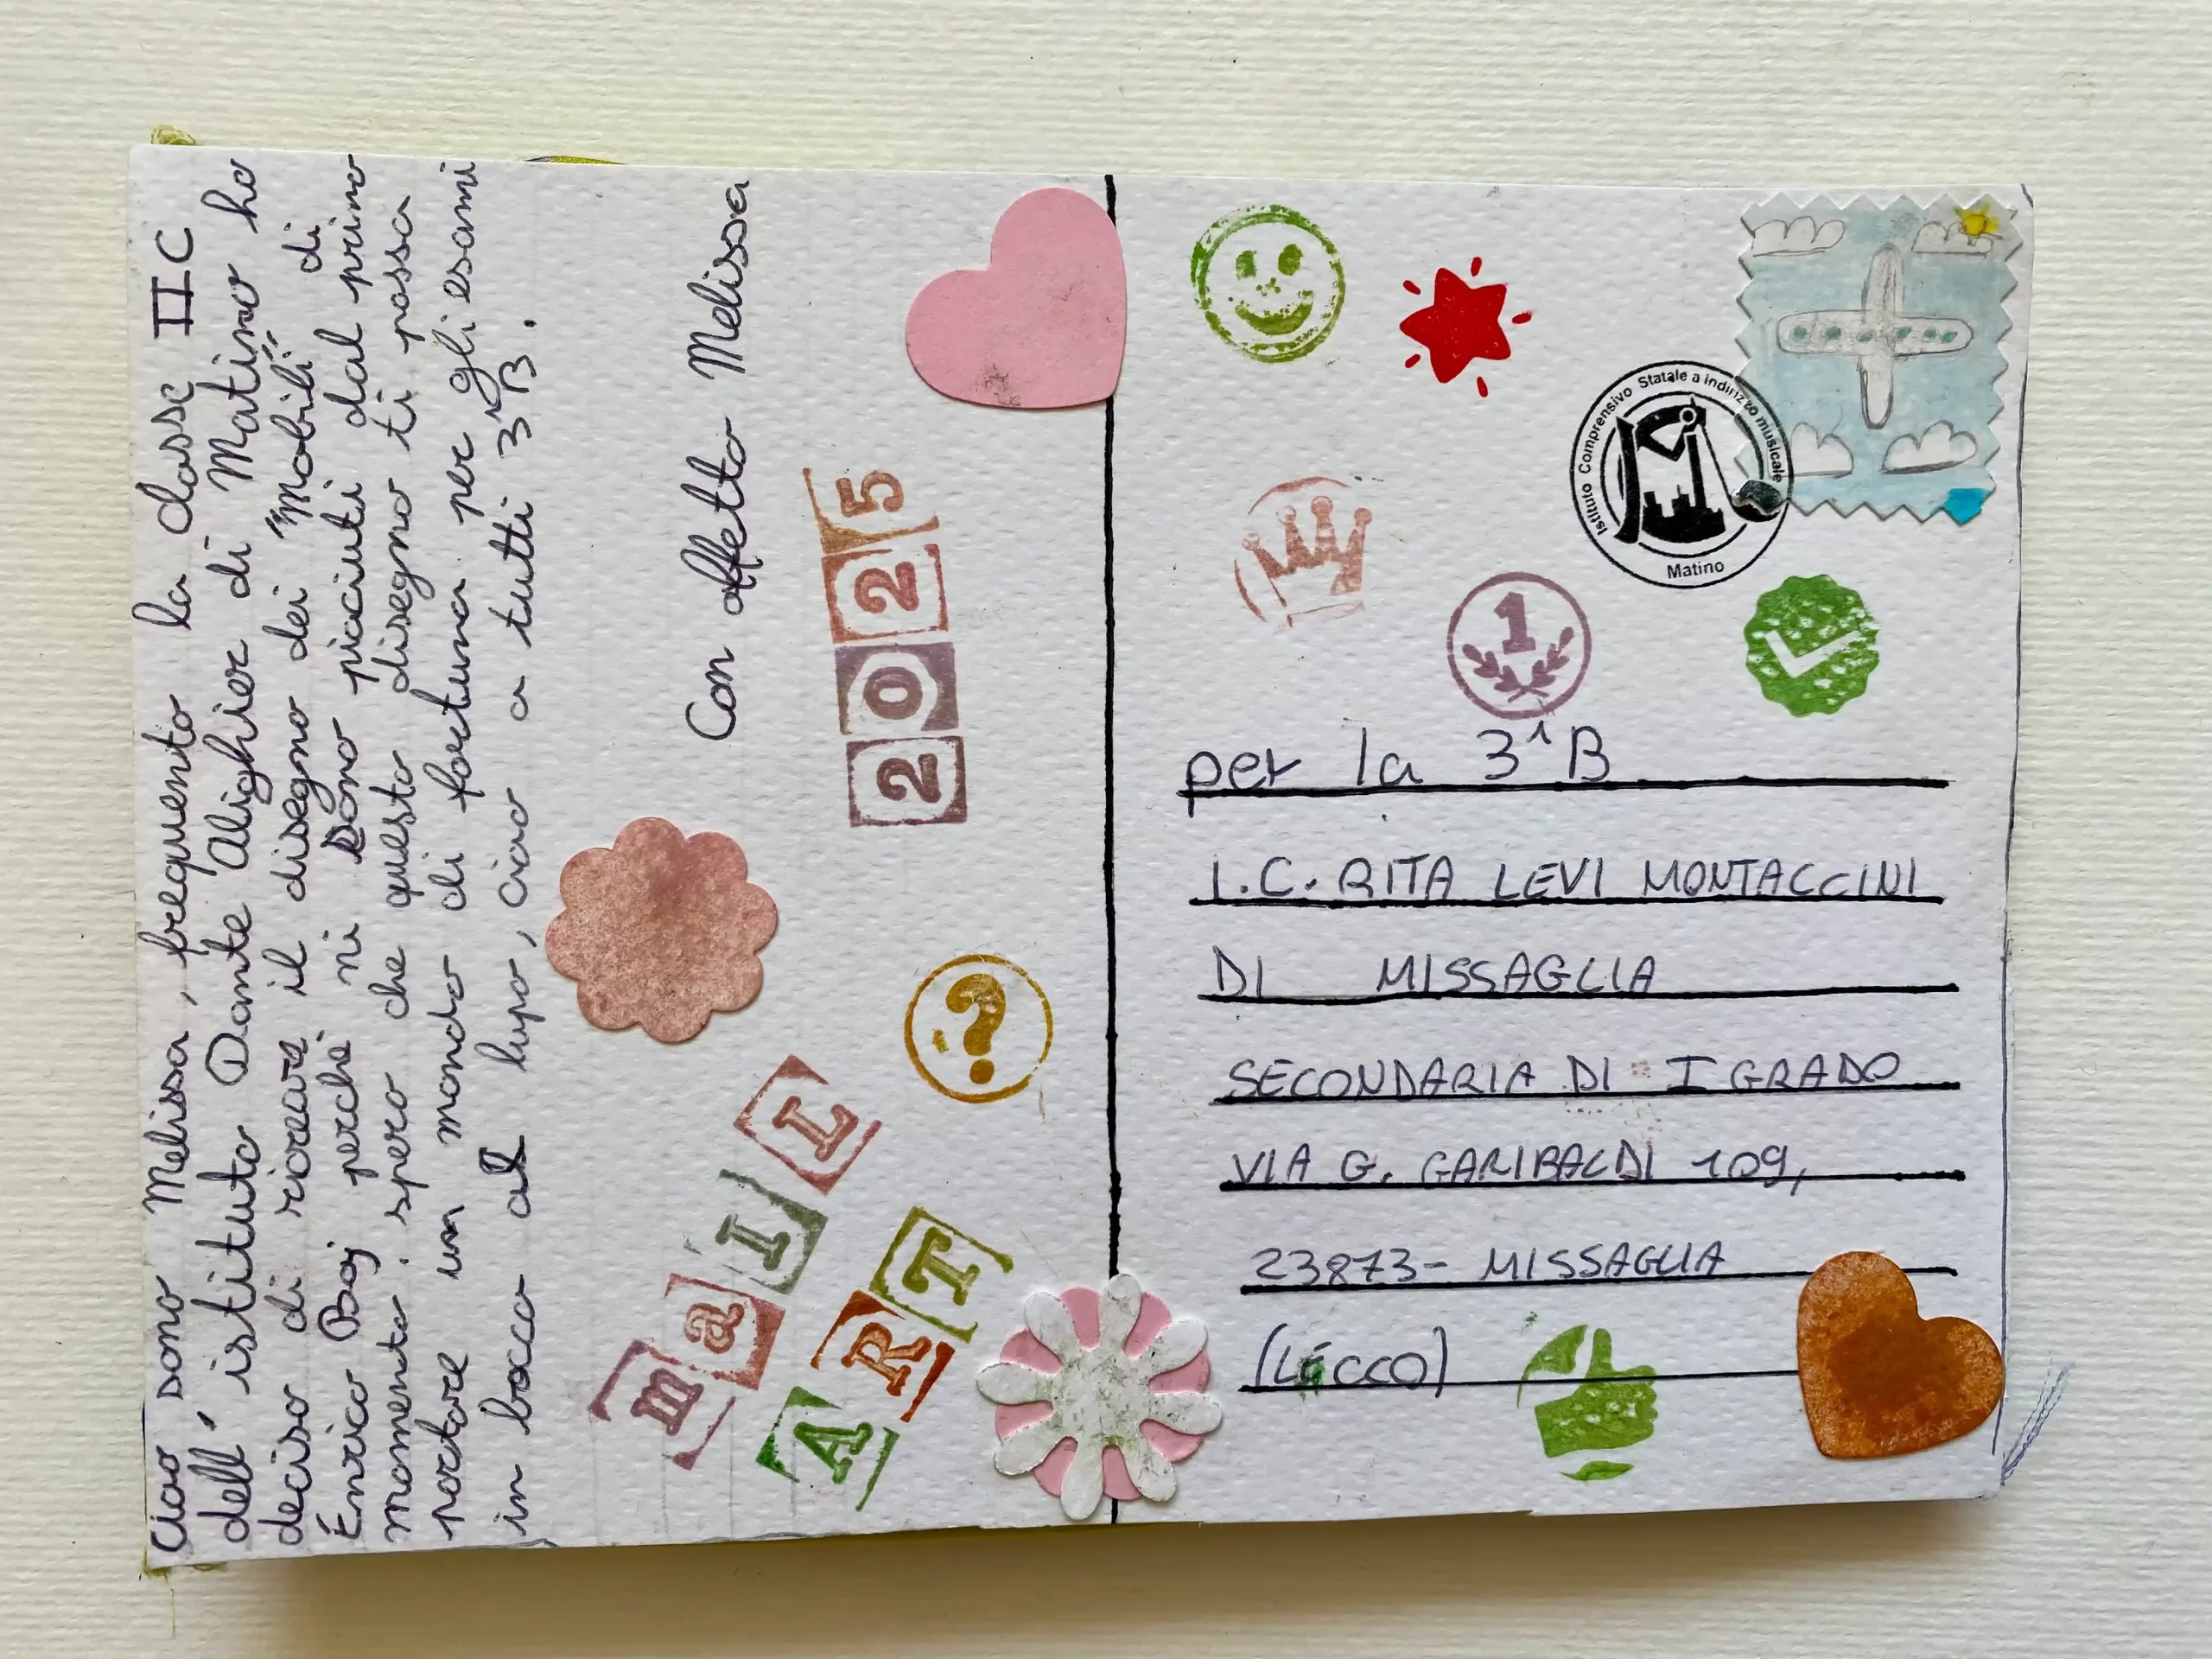 Ciao sono Melissa, frequento la classe II C
dell'istituto Dante Alighier di Matino ho
deciso di ricreare il disegno dei "Mobili" di
Enrico Baj perchè mi sono piaciuti dal primo
momento. spero che questo disegno ti possa
portare un mondo di fortuna per gli esami
in bocca al lupo, ciao a tutti 3^B.
Con affetto Melissa
2025
maIL
ART
?
Istituto Comprensivo Statale a indirizzo musicale
Matino
1
per la 3^B
I.C. RITA LEVI MONTACCINI
DI MISSAGLIA
SECONDARIA DI I GRADO
VIA G. GARIBALDI 109,
23873- MISSAGLIA
(LECCO)